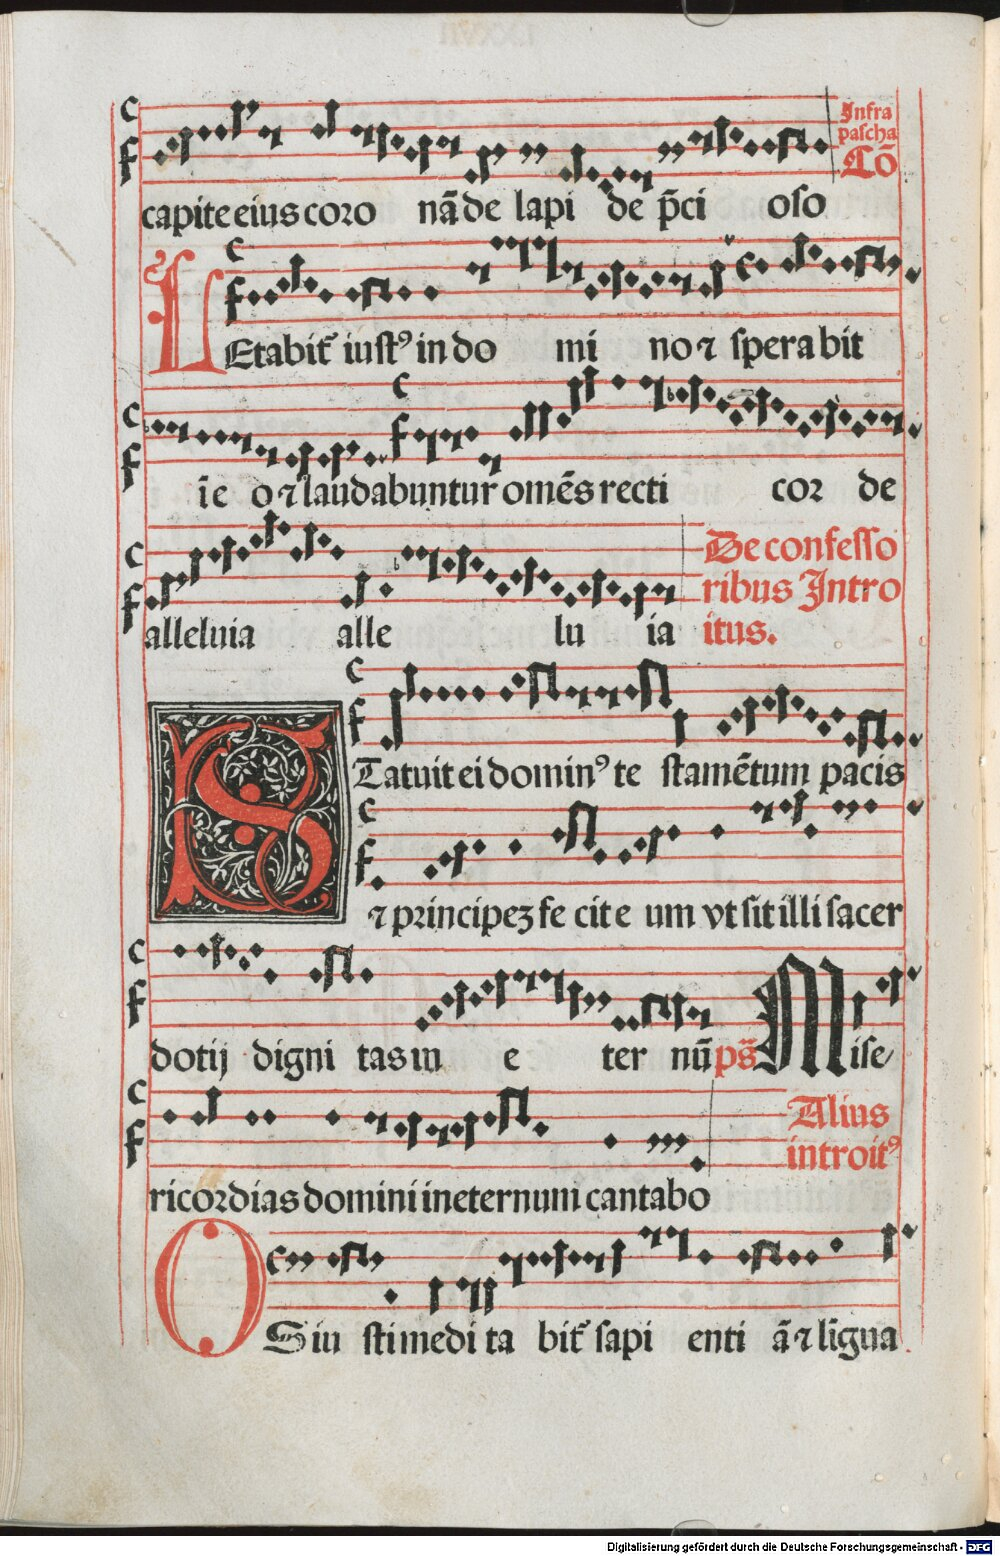 Infra
pascha
Cō
capite eius coro nā de lapi de p̄ci oso
LEtabit᷑ iustꝰ in do mi no ⁊ spera bit
īe o ⁊ laudabuntur omēs recti cor de
alleluia alle lu ia
De confesso
ribus Intro
itus.
STatuit ei dominꝰ te stamētum pacis
⁊ principeꝫ fe cit e um vt sit illi sacer
dotij digni tas in e ter nū ps̄ Mise
ricordias domini in eternum cantabo
Alius
introitꝰ
OS iu sti medi ta bit᷑ sapi enti ā ⁊ līgua
Digitalisierung gefördert durch die Deutsche Forschungsgemeinschaft - DFG